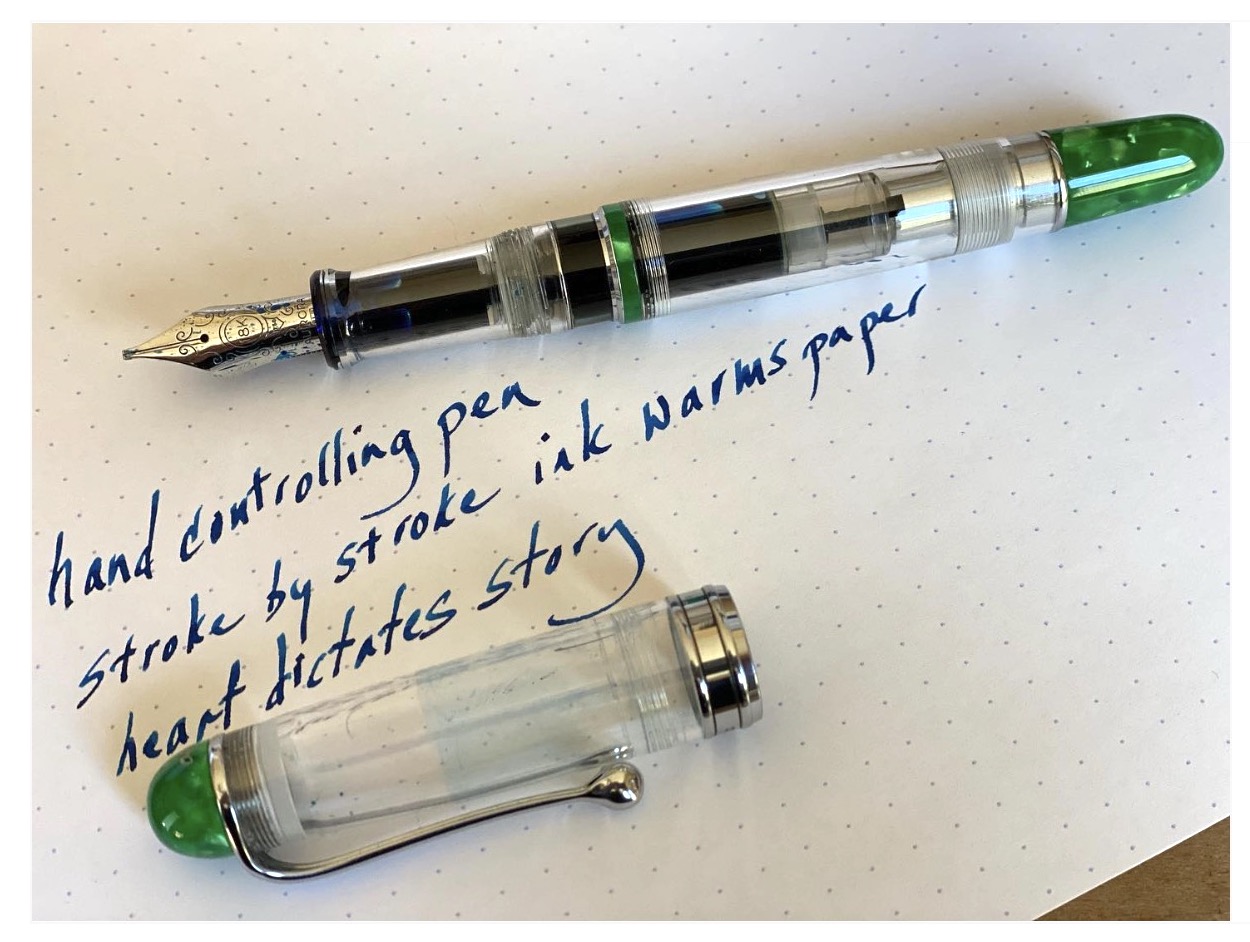 hand controlling pen
stroke by stroke ink warms paper
heart dictates story
18K